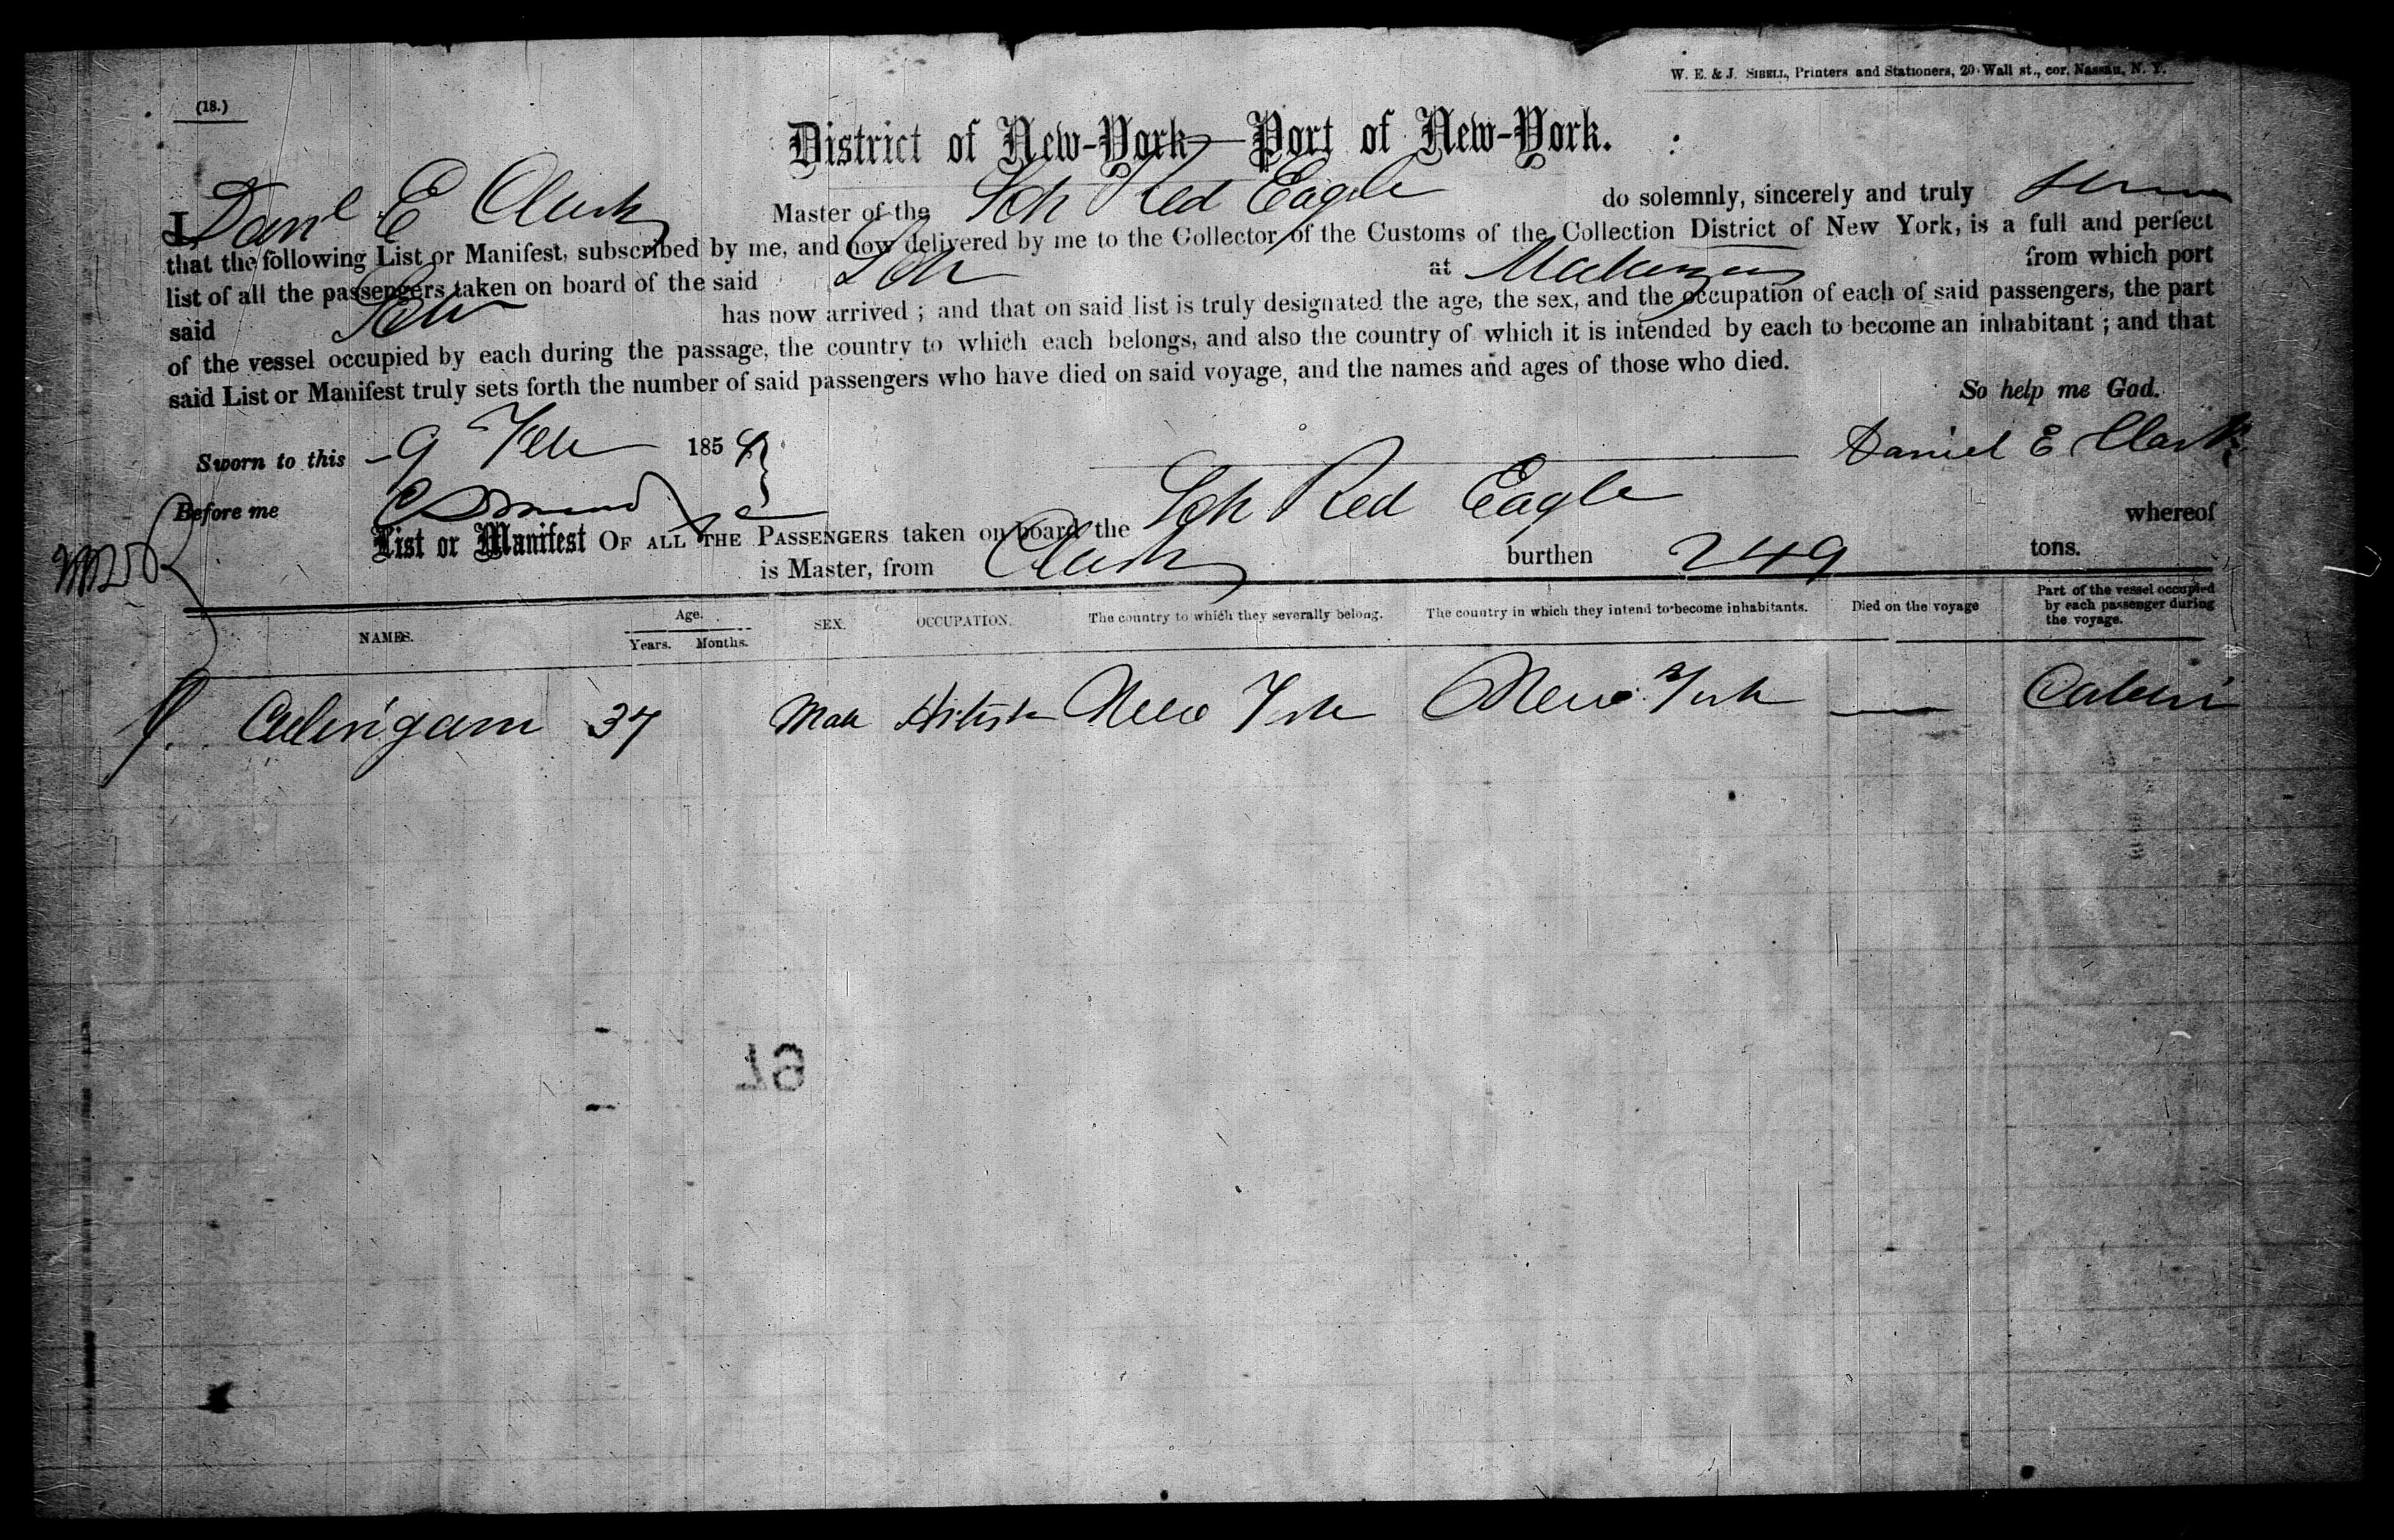 W. E. & J. SIBELL, Printers and Stationers, 20 Wall st., cor. Nassau, N. Y.
(18.)
District of New-York—Port of New-York.
I Danl E Clark Master of the Sch Red Eagle do solemnly, sincerely and truly
that the following List or Manifest, subscribed by me, and now delivered by me to the Collector of the Customs of the Collection District of New York, is a full and perfect
list of all the passengers taken on board of the said Sch at from which port
said Sch has now arrived ; and that on said list is truly designated the age, the sex, and the occupation of each of said passengers, the part
of the vessel occupied by each during the passage, the country to which each belongs, and also the country of which it is intended by each to become an inhabitant ; and that
said List or Manifest truly sets forth the number of said passengers who have died on said voyage, and the names and ages of those who died.
So help me God.
Sworn to this 9 Feb 1854 Daniel E Clark
Before me
List or Manifest OF ALL THE PASSENGERS taken on board the Sch Red Eagle whereof
Clark is Master, from burthen 249 tons.
NAMES. Age. Years. Months. SEX. OCCUPATION. The country to which they severally belong. The country in which they intend to become inhabitants. Died on the voyage Part of the vessel occupied by each passenger during the voyage.
37 Male New York New York — Cabin
79